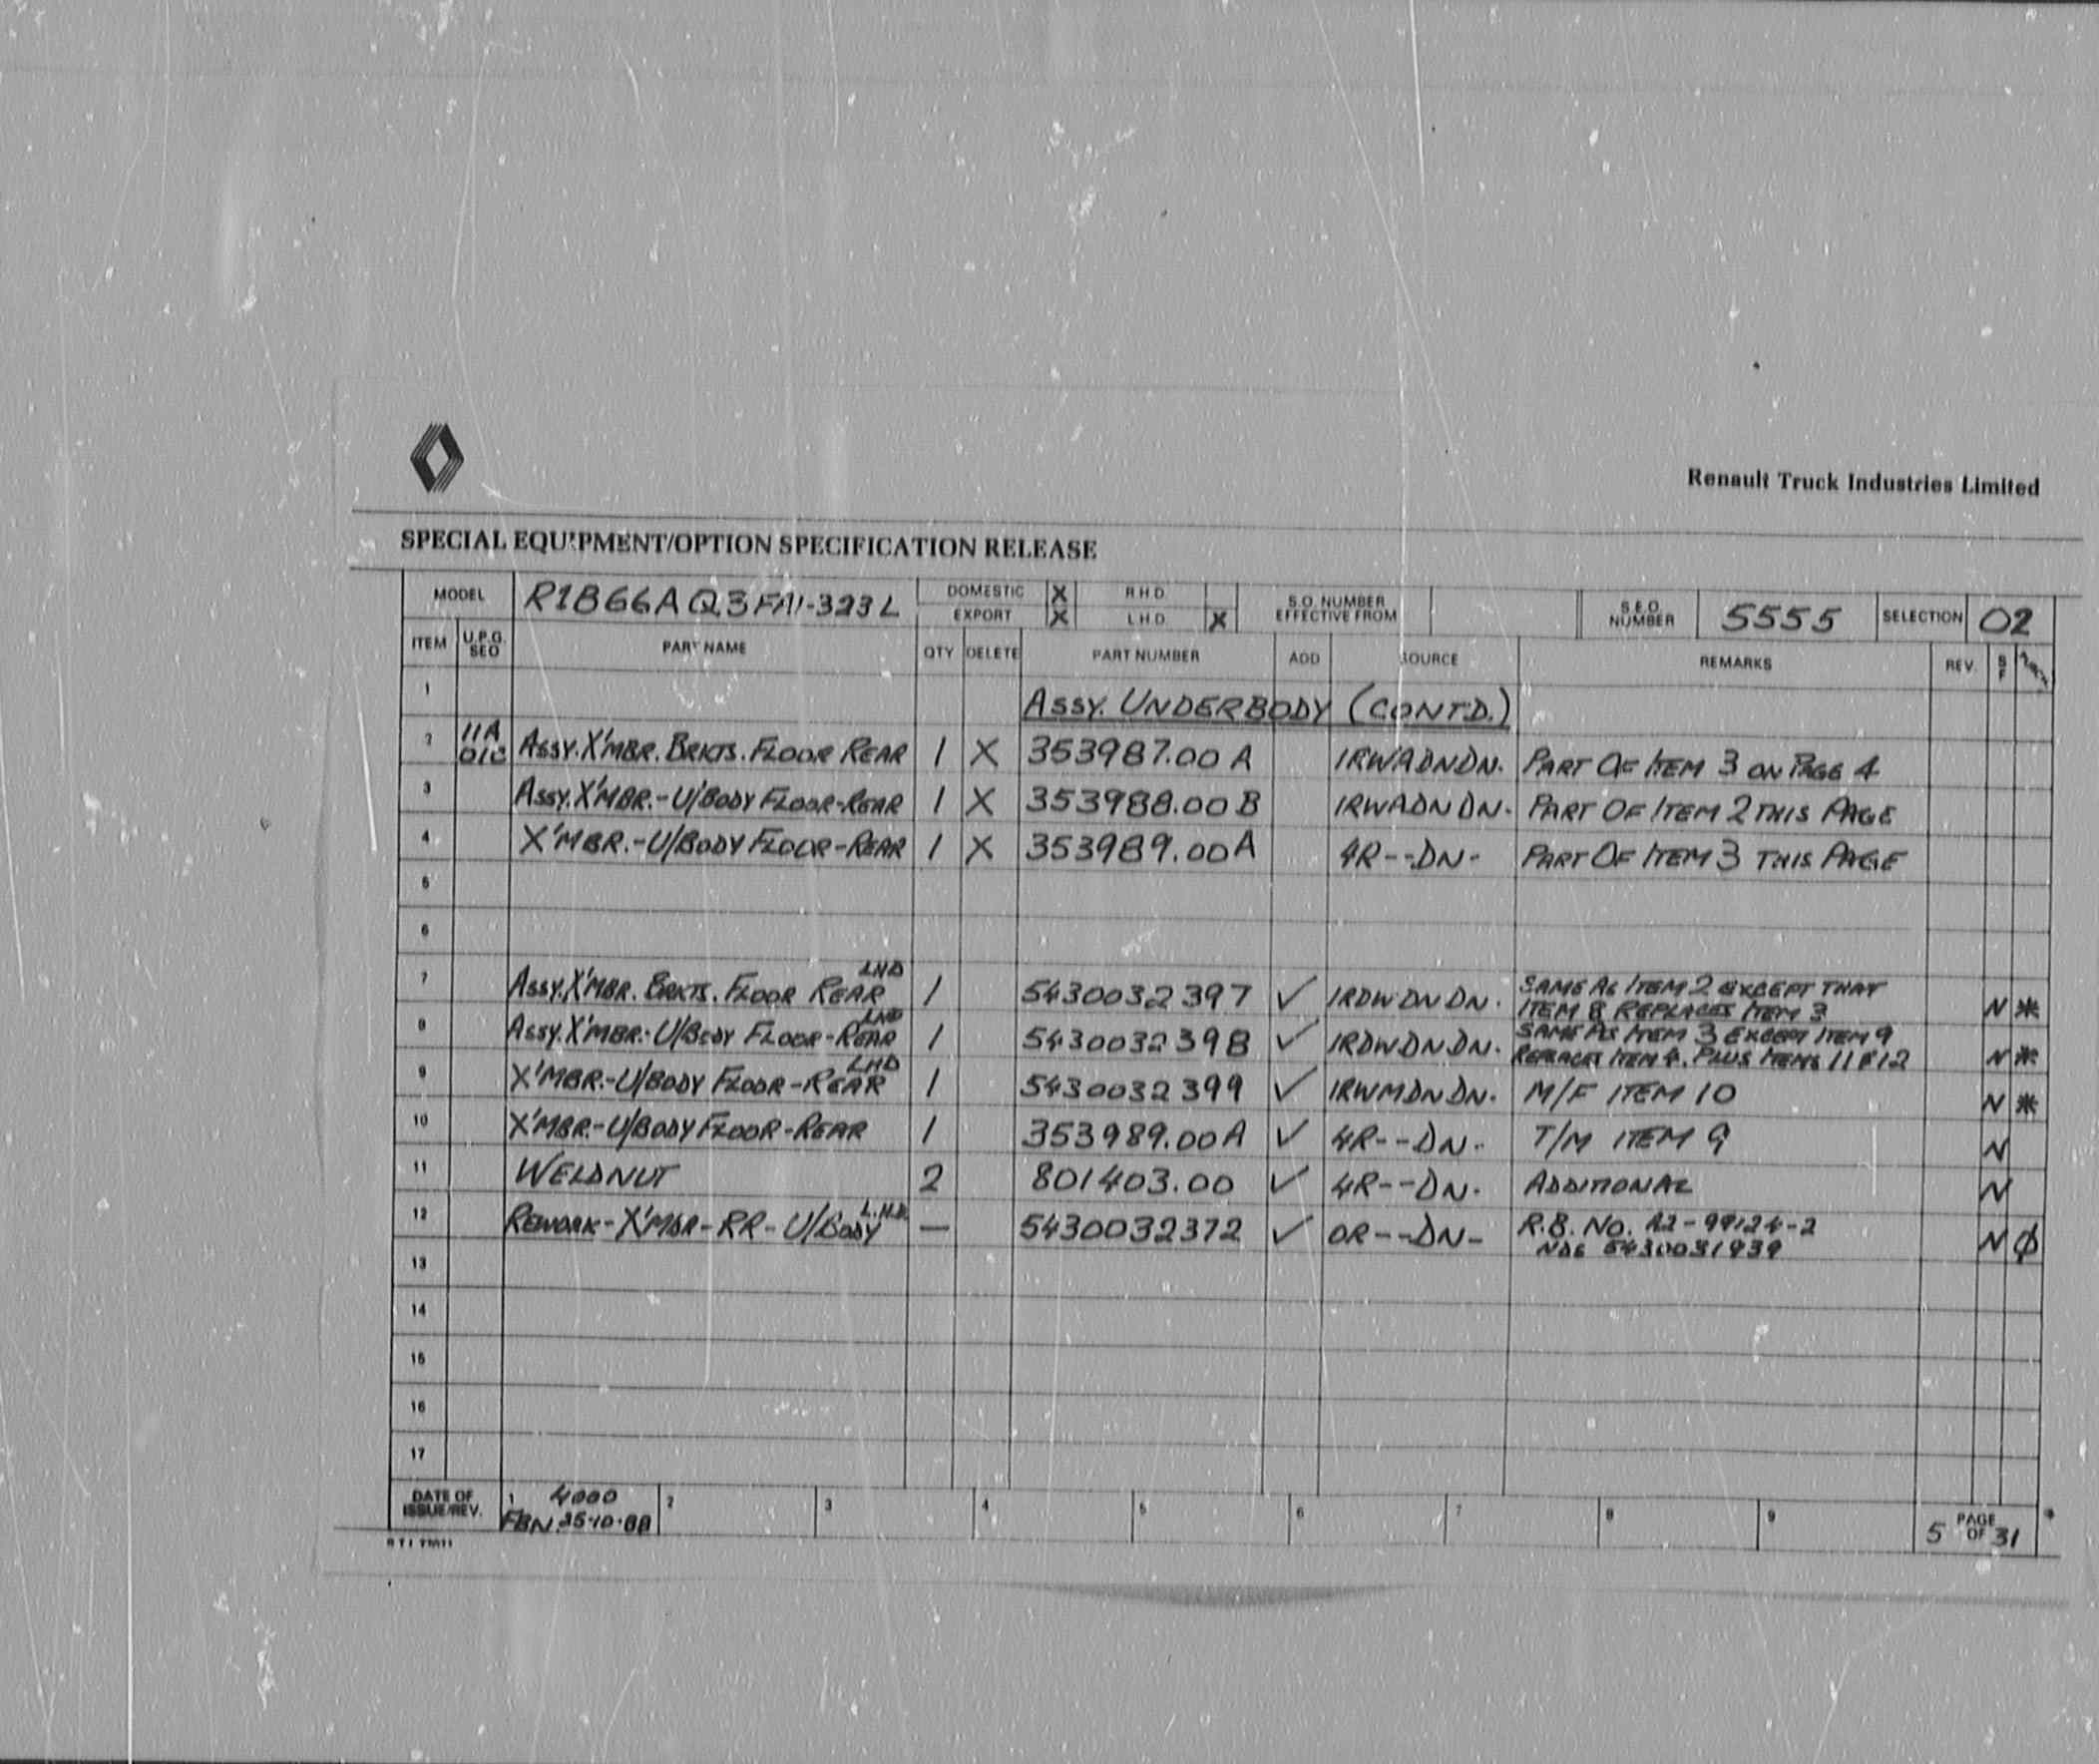 Renault Truck Industries Limited
SPECIAL EQUIPMENT/OPTION SPECIFICATION RELEASE
MODEL R1B66AQ3FA1-323L DOMESTIC X R H D S.O. NUMBER EFFECTIVE FROM S.E.O. NUMBER 5555 SELECTION 02
EXPORT X L H D X
ITEM U.P.G. SEO PART NAME QTY DELETE PART NUMBER ADD SOURCE REMARKS REV. S F
1 ASSY. UNDERBODY (CONT'D.)
2 11A 01C ASSY.X'MBR.BRKTS.FLOOR REAR 1 X 353987.00 A 1RWADNDN. PART OF ITEM 3 ON PAGE 4
3 ASSY.X'MBR.-U/BODY FLOOR-REAR 1 X 353988.00 B 1RWADNDN. PART OF ITEM 2 THIS PAGE
4 X'MBR.-U/BODY FLOOR-REAR 1 X 353989.00A 4R--DN- PART OF ITEM 3 THIS PAGE
5
6
7 ASSY.X'MBR. BRKTS. FLOOR REAR LHD 1 5430032397 ✓ 1RDWDNDN. SAME AS ITEM 2 EXCEPT THAT
ITEM 8 REPLACES ITEM 3 N *
8 ASSY.X'MBR.-U/BODY FLOOR-REAR LHD 1 5430032398 ✓ 1RDWDNDN. SAME AS ITEM 3 EXCEPT ITEM 9
REPLACES ITEM 4. PLUS ITEMS 11 & 12 N *
9 X'MBR.-U/BODY FLOOR-REAR LHD 1 5430032399 ✓ 1RWMDNDN. M/F ITEM 10 N *
10 X'MBR.-U/BODY FLOOR-REAR 1 353989.00A ✓ 4R--DN- T/M ITEM 9 N
11 WELDNUT 2 801403.00 ✓ 4R--DN. ADDITIONAL N
12 REWORK-X'MBR-RR-U/BODY L.H.D. — 5430032372 ✓ OR--DN- R.B. NO. A2-99124-2
5430031939 N ϕ
13
14
15
16
17
DATE OF ISSUE/REV. 1 4000 2 3 4 5 6 7 8 9 PAGE 5 OF 31
FBN 25-10-88